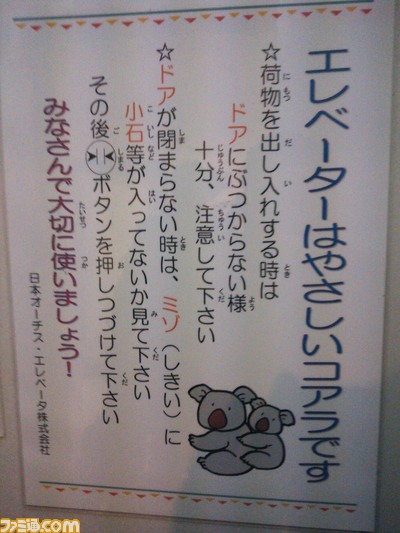 エレベーターはやさしいコアラです
☆荷物を出し入れする時は
ドアにぶつからない様
十分、注意して下さい
☆ドアが閉まらない時は、ミゾ（しきい）に
小石等が入ってないか見て下さい
その後▶|◀ボタンを押しつづけて下さい
みなさんで大切に使いましょう！
日本オーチス・エレベータ株式会社
ファミ通.com